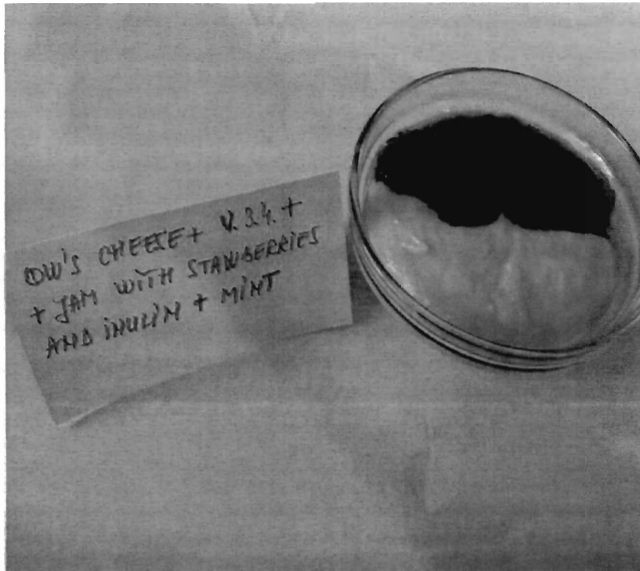 OW'S CHEESE + V.3.4. +
+ JAM WITH STAWBERRIES
AND INULIN + MINT